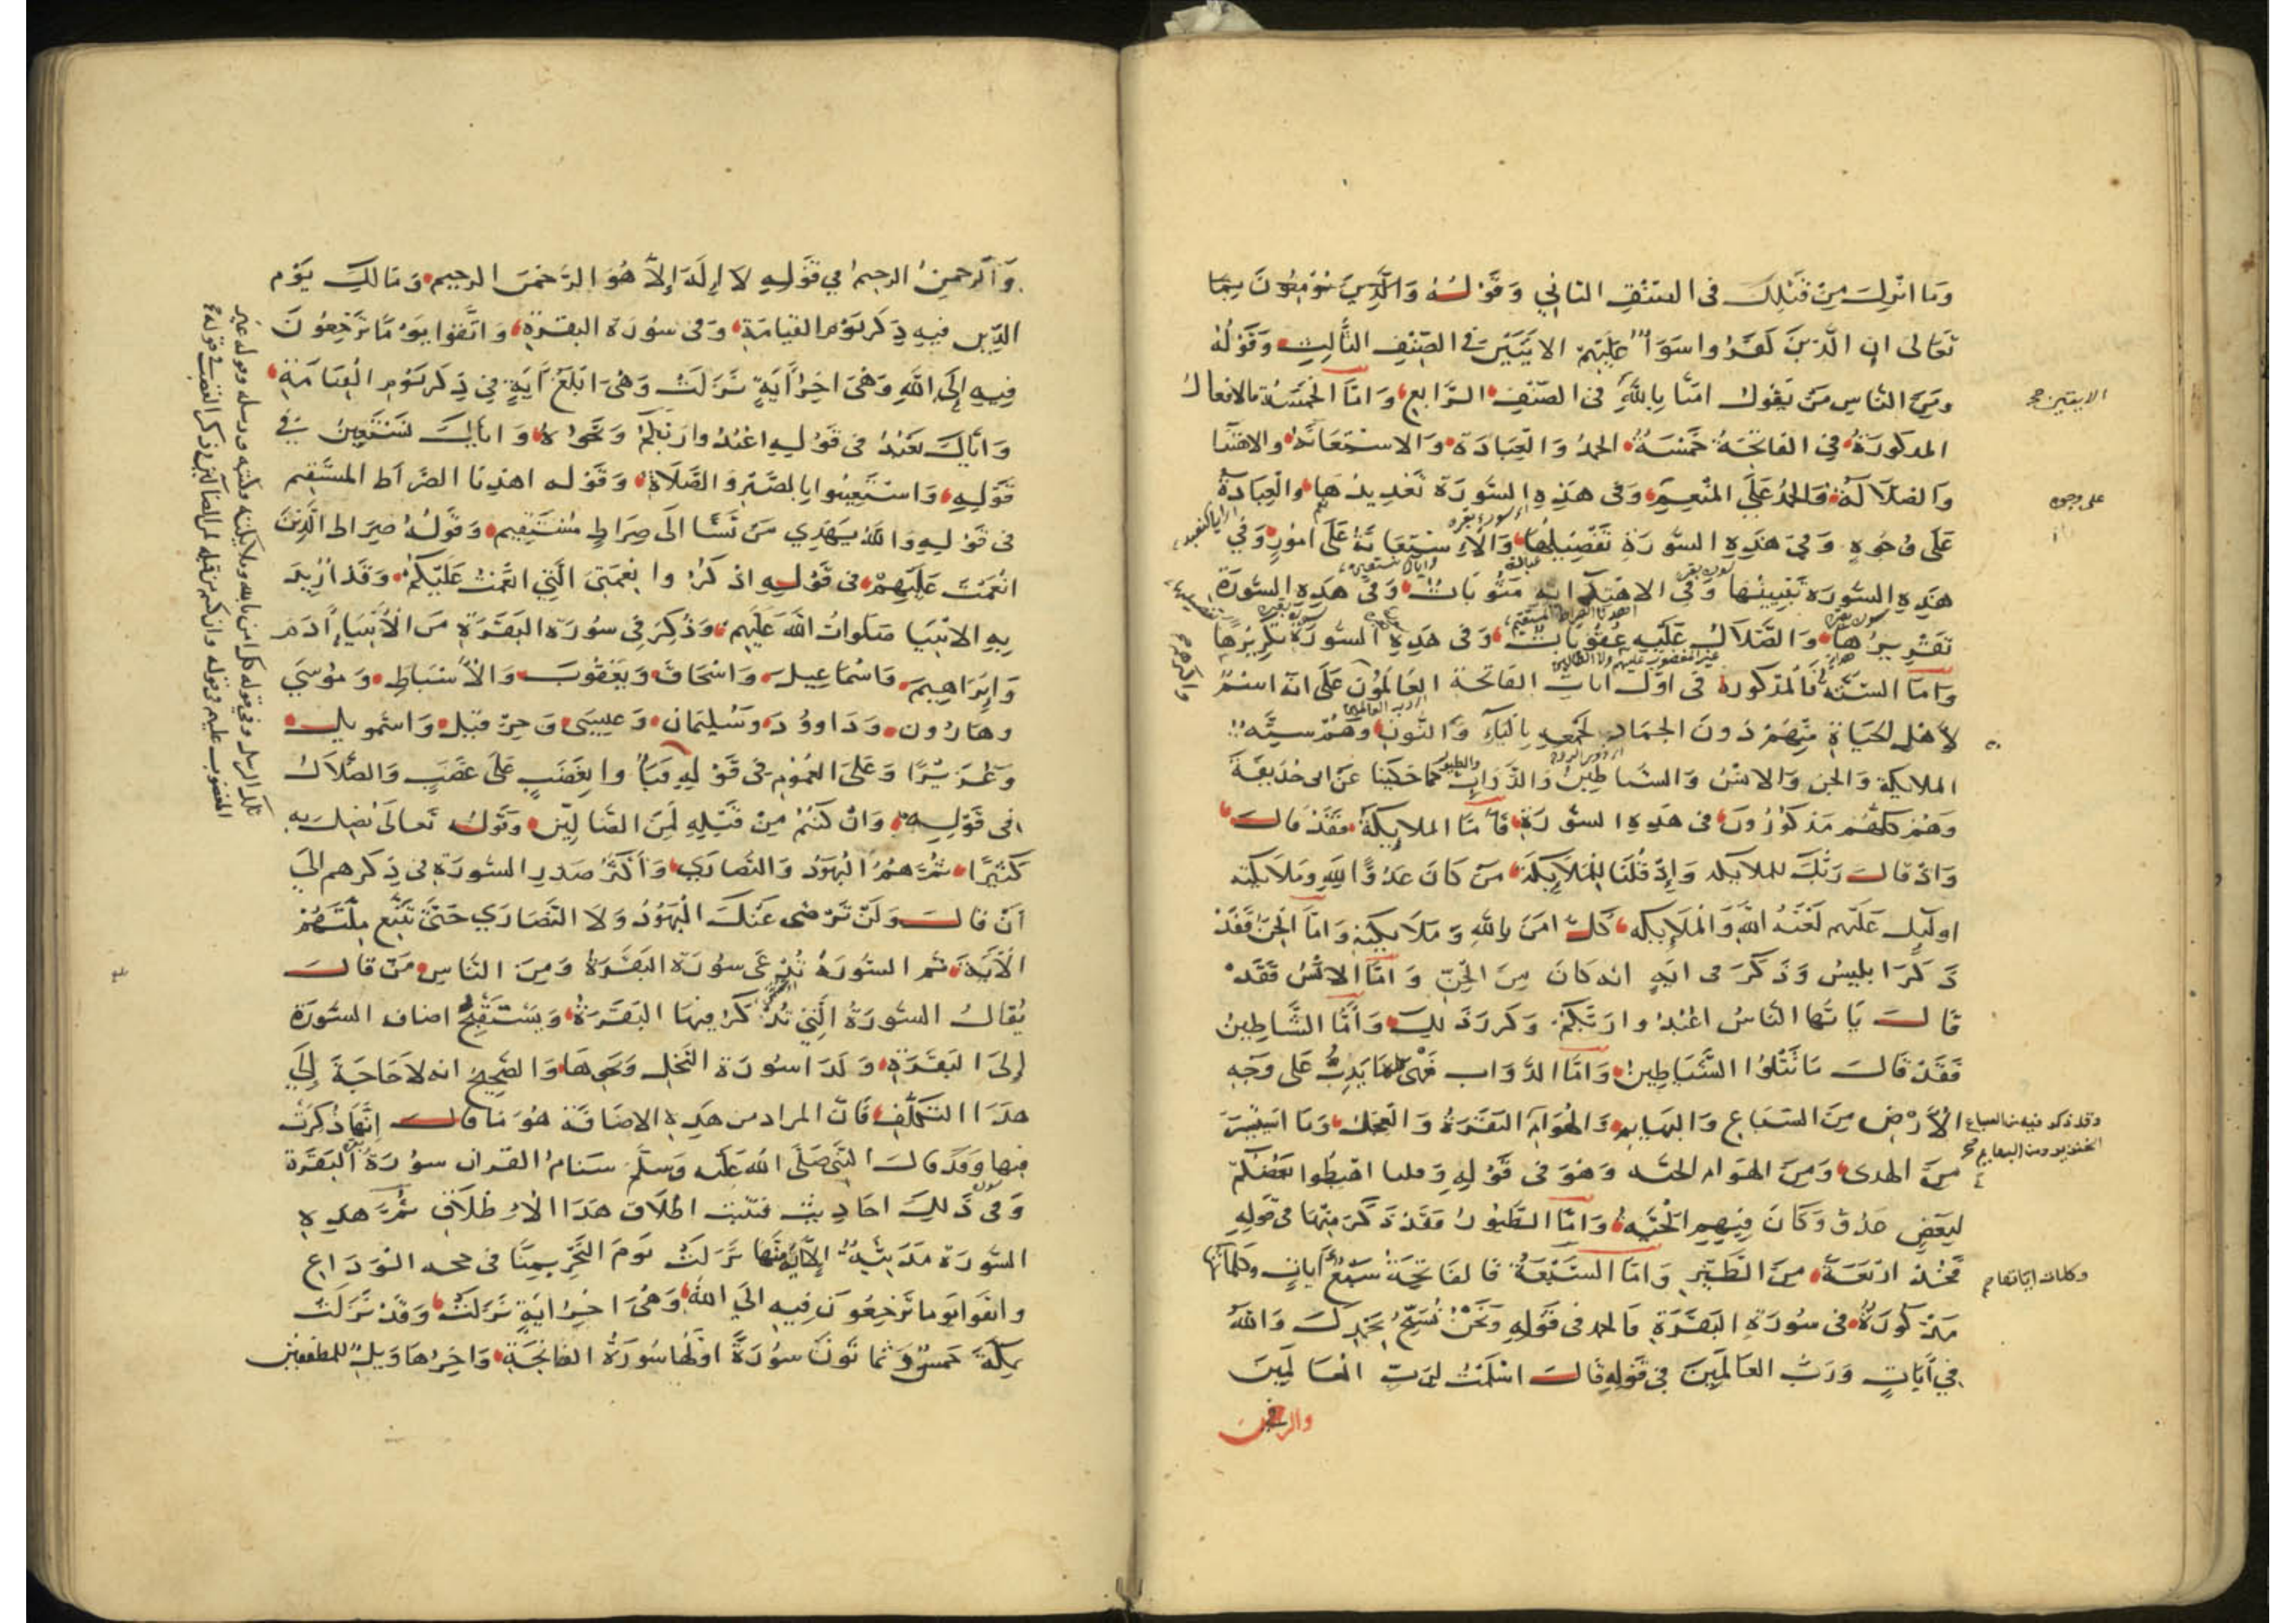 وما انزل من قبلك في الصنف الثاني وقوله والذين يؤمنون بما
تعالى ان الذين كفروا سواء عليهم الايتين في الصنف الثالث وقوله
ومن الناس من يقول امنا بالله في الصنف الرابع واما الخمسة فالافعال
المذكورة في الفاتحة خمسة الحمد والعبادة والاستعانة والاهتدا
والضلالة فالحمد على المنعم وفي هذه السورة تعديدها والعبادة
على وجوه وفي هذه السورة تفصيلها والاستعانة على امور وفي
هذه السورة تبيينها وفي الاهتدا به مثوبات وفي هذه السورة
تقريرها والضلال عليه عقوبات وفي هذه السورة تكريرها
واما الستة فالمذكورة في اول ايات الفاتحة العالمون على انه اسم
لاهل الحياة منهم دون الجماد لجمعه بالياء والنون وهم ستة
الملايكة والجن والانس والشياطين والدواب كما حكينا عن ابي حذيفة
وهم كلهم مذكورون في هذه السورة فاما الملايكة فقد قال
واذ قال ربك للملايكة واذ قلنا للملايكة من كان عدوا لله وملايكته
اوليك عليهم لعنة الله والملايكه كل امن بالله وملايكته واما الجن فقد
ذكر ابليس وذكر في اية انه كان من الجن واما الانس فقد
قال يا ايها الناس اعبدوا ربكم وكرر ذلك واما الشياطين
فقد قال ما تتلوا الشياطين واما الدواب فهي كلما يدب على وجه
الارض من السباع والبهايم والهوام البقرة والعجل وما استيسر
من الهدى ومن الهوام الحية وهو في قوله وقلنا اهبطوا بعضكم
لبعض عدو وكان فيهم الحية واما الطيور فقد ذكر منها في قوله
فخذ اربعة من الطير واما السبعة فالفاتحة سبع ايات وكلماتها
مذكورة في سورة البقرة فالحمد في قوله ونحن نسبح بحمدك والله
في ايات ورب العالمين في قوله قال اسلمت لرب العالمين
والرحمن
الايتين صح
على وجوه
وقد ذكر فيه من السباع
الخنزير ومن البهايم صح
وكلمات اياتها
والرحمن الرحيم في قوله لا اله الا هو الرحمن الرحيم ومالك يوم
الدين فيه ذكر يوم القيامة وفي سورة البقرة واتقوا يوما ترجعون
فيه الى الله وهي اخر اية نزلت وهي ابلغ اية في ذكر يوم القيامة
واياك نعبد في قوله اعبدوا ربكم ونحوه واياك نستعين في
قوله واستعينوا بالصبر والصلاة وقوله اهدنا الصراط المستقيم
في قوله والله يهدي من يشا الى صراط مستقيم وقوله صراط الذين
انعمت عليهم في قوله اذكروا نعمتي التي انعمت عليكم وقد اريد
به الانبيا صلوات الله عليهم وذكر في سورة البقرة من الانبياء ادم
وابراهيم واسماعيل واسحاق ويعقوب والاسباط وموسى
وهارون وداوود وسليمان وعيسى وحزقيل واسمويل
وعزيرا وعلى العموم في قوله فباوا بغضب على غضب والضلال
في قوله وان كنتم من قبله لمن الضالين وقوله تعالى يضل به
كثيرا ثم هم اليهود والنصارى واكثر صدر السورة في ذكرهم الى
ان قال ولن ترضى عنك اليهود ولا النصارى حتى تتبع ملتهم
الاية ثم السورة تدعى سورة البقرة ومن الناس من قال
يقال السورة التي تذكر فيها البقرة ويستقبح اضاف السورة
الى البقرة وكذا سورة النحل ونحوها والصحيح انه لا حاجة الى
هذا التكلف فان المراد من هذه الاضافة هو ما قال انها ذكرت
فيها وقد قال النبي صلى الله عليه وسلم سنام القران سورة البقرة
وفي ذلك احاديث فثبت اطلاق هذا الاطلاق ثم هذه
السورة مدنية الا اية منها نزلت يوم النحر بمنا في حجه الوداع
واتقوا يوما ترجعون فيه الى الله وهي اخر اية نزلت وقد نزلت
بمكة خمس وثمانون سورة اولها سورة الفاتحة واخرها ويل للمطففين